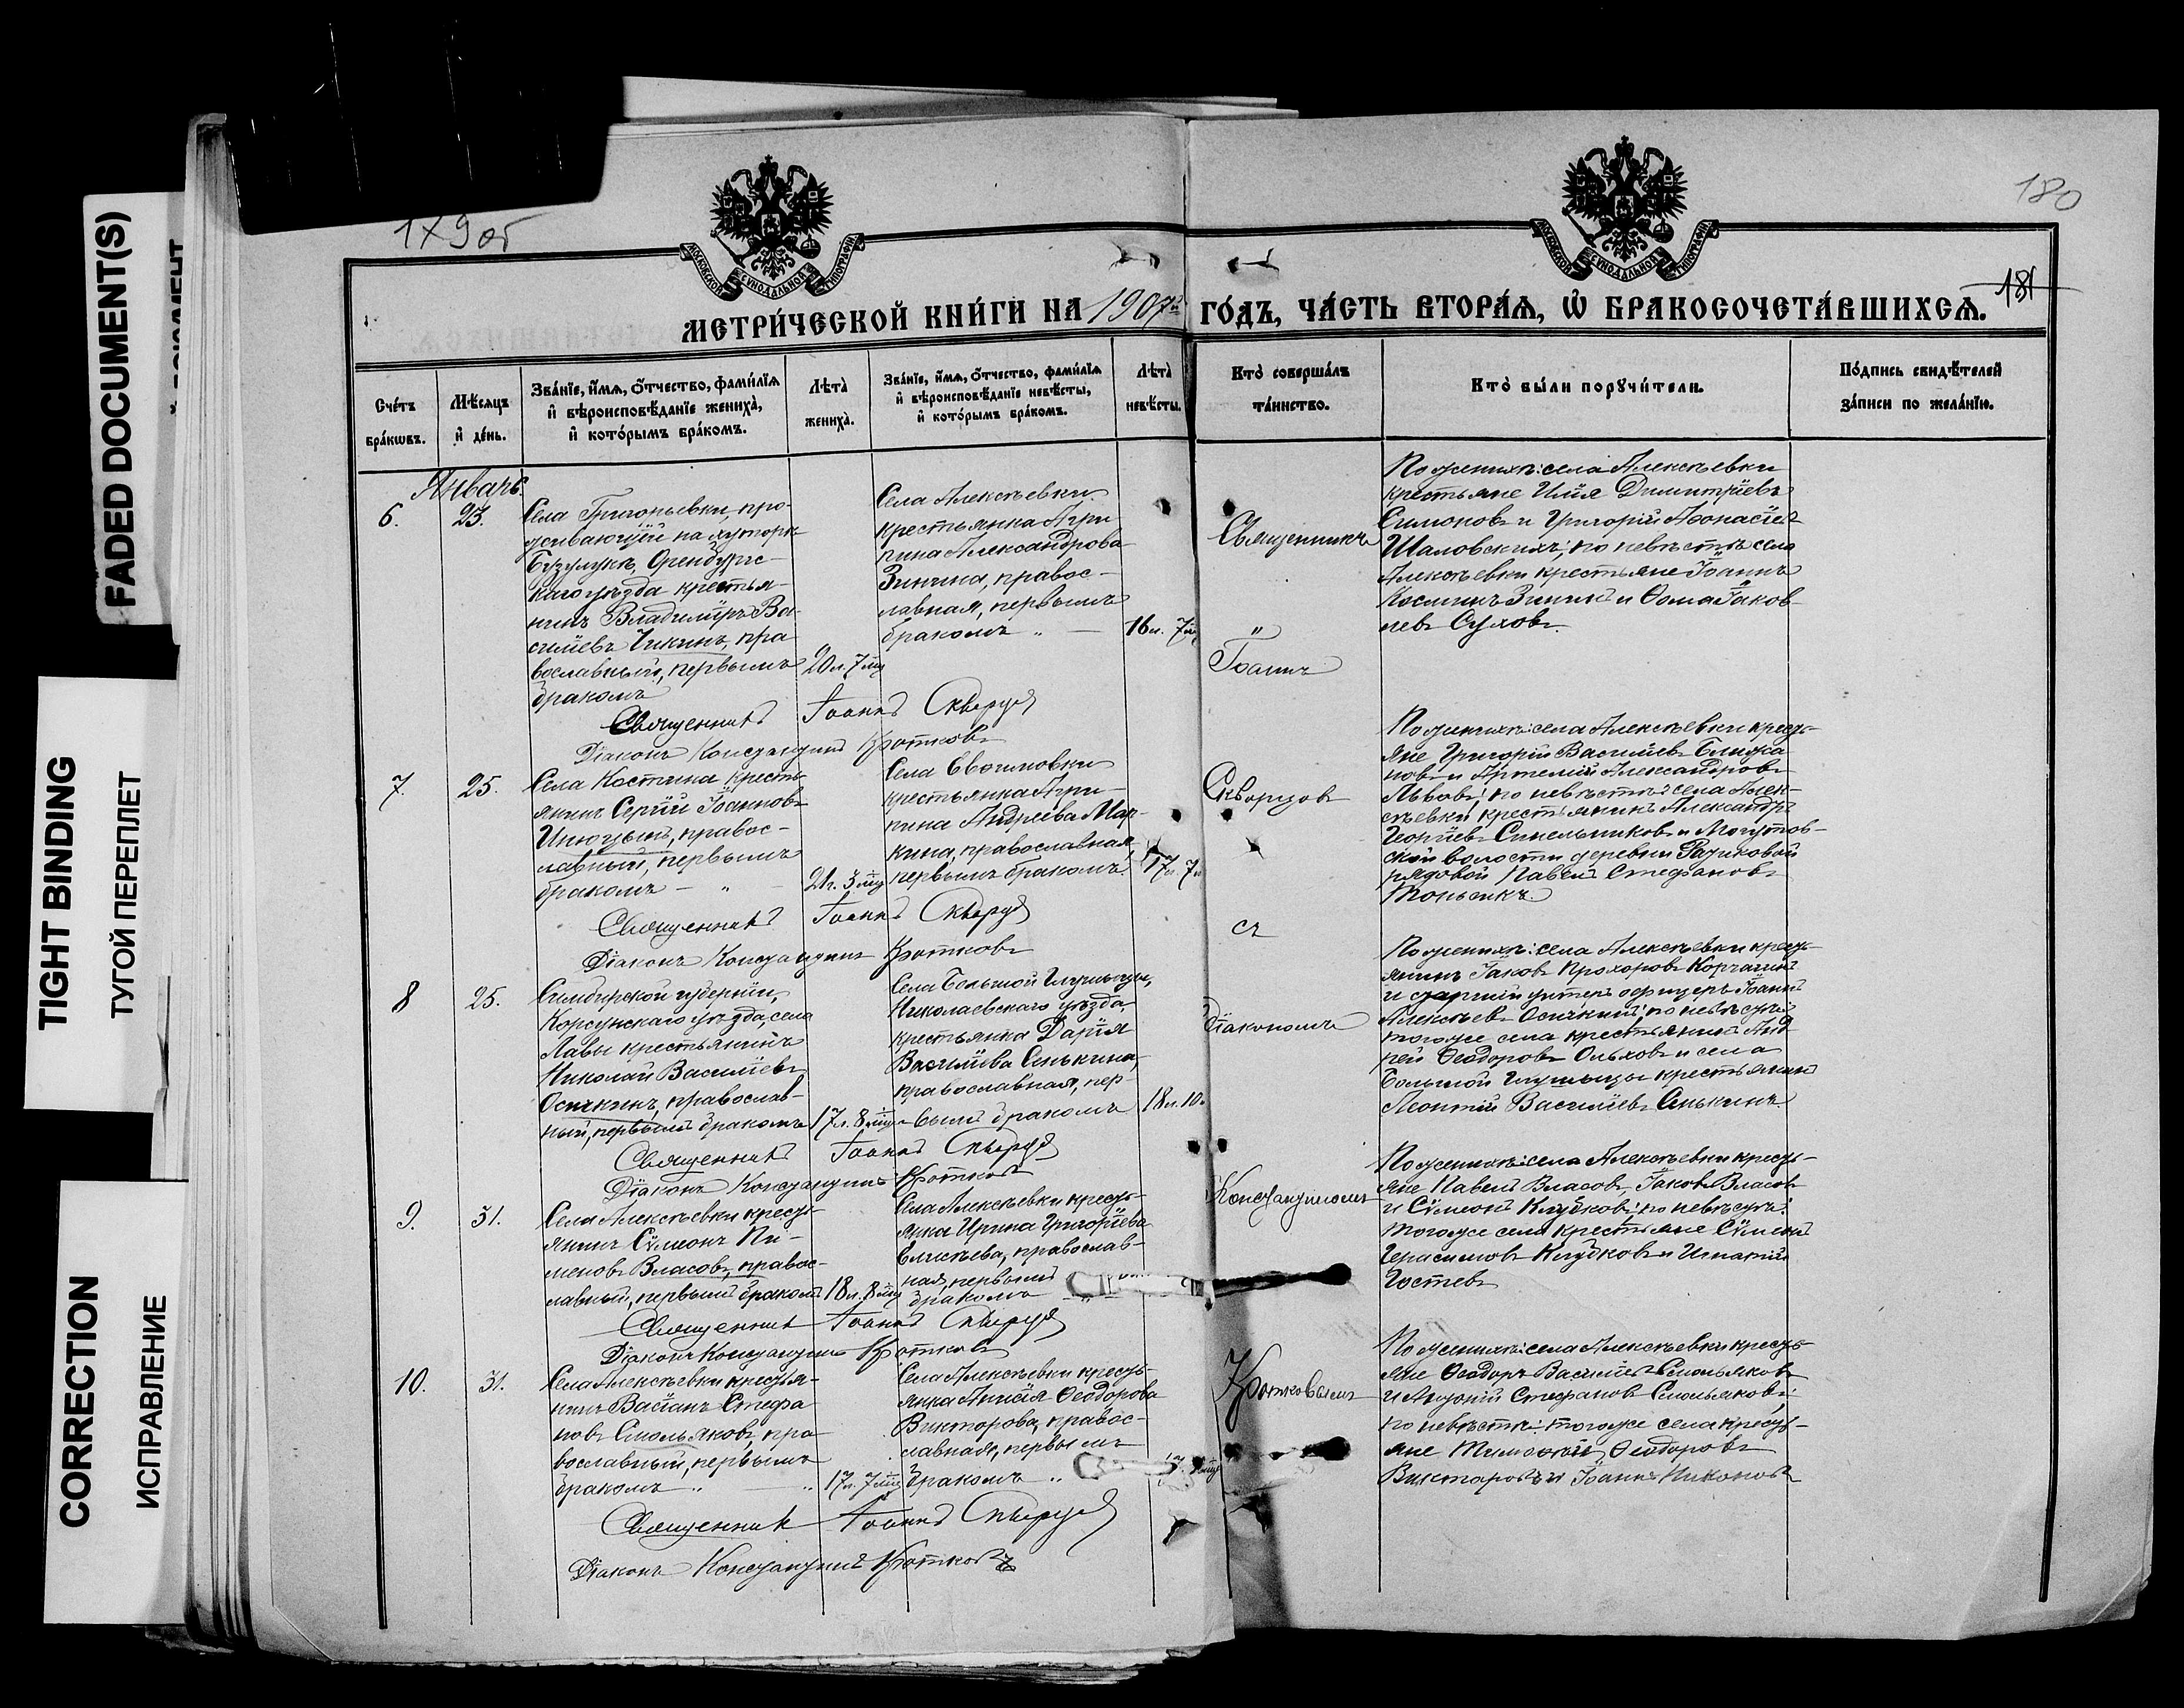 FADED DOCUMENT(S)
TIGHT BINDING
ТУГОЙ ПЕРЕПЛЕТ
CORRECTION
ИСПРАВЛЕНИЕ
179об
180
181
МОСКОВСКОЙ СѴНОДАЛЬНОЙ ТИПОГРАФІИ
МОСКОВСКОЙ СѴНОДАЛЬНОЙ ТИПОГРАФІИ
МЕТРИ́ЧЕСКОЙ КНИ́ГИ НА 1907й ГО́ДЪ, ЧА́СТЬ ВТОРА́Ѧ, Ѽ БРАКОСОЧЕТА́ВШИХСѦ.
Сче́тъ
бра́кѡвъ.
Мѣ́сяцъ
и҆ де́нь.
Зва́нїе, и҆́мѧ, ѻ҆́тчество, фами́лїѧ
и҆ вѣроисповѣ́данїе жениха̀,
и҆ кото́рымъ бра́комъ.
Лѣта̀
жениха̀.
Зва́нїе, и҆́мѧ, ѻ҆́тчество, фами́лїѧ
и҆ вѣроисповѣ́данїе невѣ́сты,
и҆ кото́рымъ бра́комъ.
Лѣта̀
невѣ́сты.
Кто̀ соверша́лъ
та́инство.
Кто̀ бы́ли порꙋчи́тели.
По́дпись свидѣ́телей
за́писи по жела́нїю.
Январь.
6.
23.
Села Григорьевки, про-
живающий на хуторѣ
Бузулукѣ, Оренбургс-
каго уѣзда крестья-
нинъ Владиміръ Ва-
силіевъ Чикинъ, пра
вославный, первымъ
бракомъ
20 л. 7 мц
Села Алексѣевки
крестьянка Агри
пина Александрова
Зинина, правос-
лавная, первымъ
бракомъ " —
16 л. 7 мц
Священникъ
"
Іоаннъ
По женихѣ: села Алексѣевки
крестьяне Илія Димитріевъ
Симоновъ и Григорій Аѳонасіев
Шаловскихъ; по невѣстѣ: села
Алексѣевки крестьяне Іоаннъ
Косминъ Зининъ и Ѳома Іаков-
левъ Суховъ.
Священникъ Іоаннъ Скворцов
Діаконъ Константинъ Кротковъ
7.
25.
Села Костина кресть-
янинъ Сергій Іоанновъ
Инюцын, правос-
лавный, первымъ
бракомъ — " —
21 г. 3 мц
Села Евфимовки
крестьянка Агри-
пина Андреева Мар-
кина, православная
первымъ бракомъ
17 л. 7 м
Скворцовъ
По женихѣ: села Алексѣевки кресть-
яне Григорій Василіевъ Ближа
новъ и Артемій Александровъ
Львовъ; по невѣстѣ: села Алек-
сѣевки крестьянинъ Александръ
Георгіевъ Синельниковъ и Могутов-
ской волости деревни
рядовой Павелъ Стефановъ
Священникъ Іоаннъ Скворцов
Діаконъ Константинъ Кротковъ
съ
8
25.
Симбирской губерніи,
Корсунскаго уѣзда, села
Лавы крестьянинъ
Николай Василіевъ
Осичкинъ, православ-
ный, первымъ бракомъ
17 л. 8 мц
Села Большой Глушицы,
Николаевскаго уѣзда,
крестьянка Дарія
Василіева Сенькина,
православная, пер-
вымъ бракомъ
18 л. 10
діакономъ
По женихѣ: села Алексѣевки кресть-
янинъ Іаковъ Прохоровъ Корчагинъ
и старшій унтеръ офицеръ Іоаннъ
Алексѣевъ Осичкинъ; по невѣстѣ:
тогоже села крестьянинъ Анд
рей Ѳеодоровъ Ольховъ и села
Большой Глушицы крестьянинъ
Леонтій Василіевъ Сенькинъ.
Священникъ Іоаннъ Скворцов
Діаконъ Константинъ Кротковъ
9.
31.
Села Алексѣевки кресть-
янинъ Сѵмеонъ Пи-
меновъ Власовъ, правос-
лавный, первымъ бракомъ
18 л. 8 мц
Села Алексѣевки кресть-
янка Ирина Григоріева
Елисѣева, православ-
ная, первымъ
бракомъ
Константиномъ
По женихѣ: села Алексѣевки кресть-
яне Павелъ Власовъ, Іаковъ Власовъ
и Сѵмеонъ Клубковъ; по невѣстѣ:
тогоже села крестьяне Сѵмеонъ
Герасимовъ Клубковъ и Игнатій
Гостевъ
Священникъ Іоаннъ Скворцов
Діаконъ Константинъ Кротковъ
10.
31.
Села Алексѣевки крестья-
нинъ Васіанъ Стефа
новъ Смольяковъ, пра
вославный, первымъ
бракомъ " — "
17 л. 7 мц
Села Алексѣевки кресть
янка Анисія Ѳеодорова
Викторова, правос-
лавная, первымъ
бракомъ "
Кротковымъ
По женихѣ: села Алексѣевки кресть-
яне Ѳеодоръ Василіевъ Смольяковъ
и Антоній Стефановъ Смольяковъ;
по невѣстѣ: тогоже села кресть-
яне Тимоѳей Ѳеодоровъ
Викторовъ и Іоаннъ Никоновъ
Священникъ Іоаннъ Скворцов
Діаконъ Константинъ Кротковъ